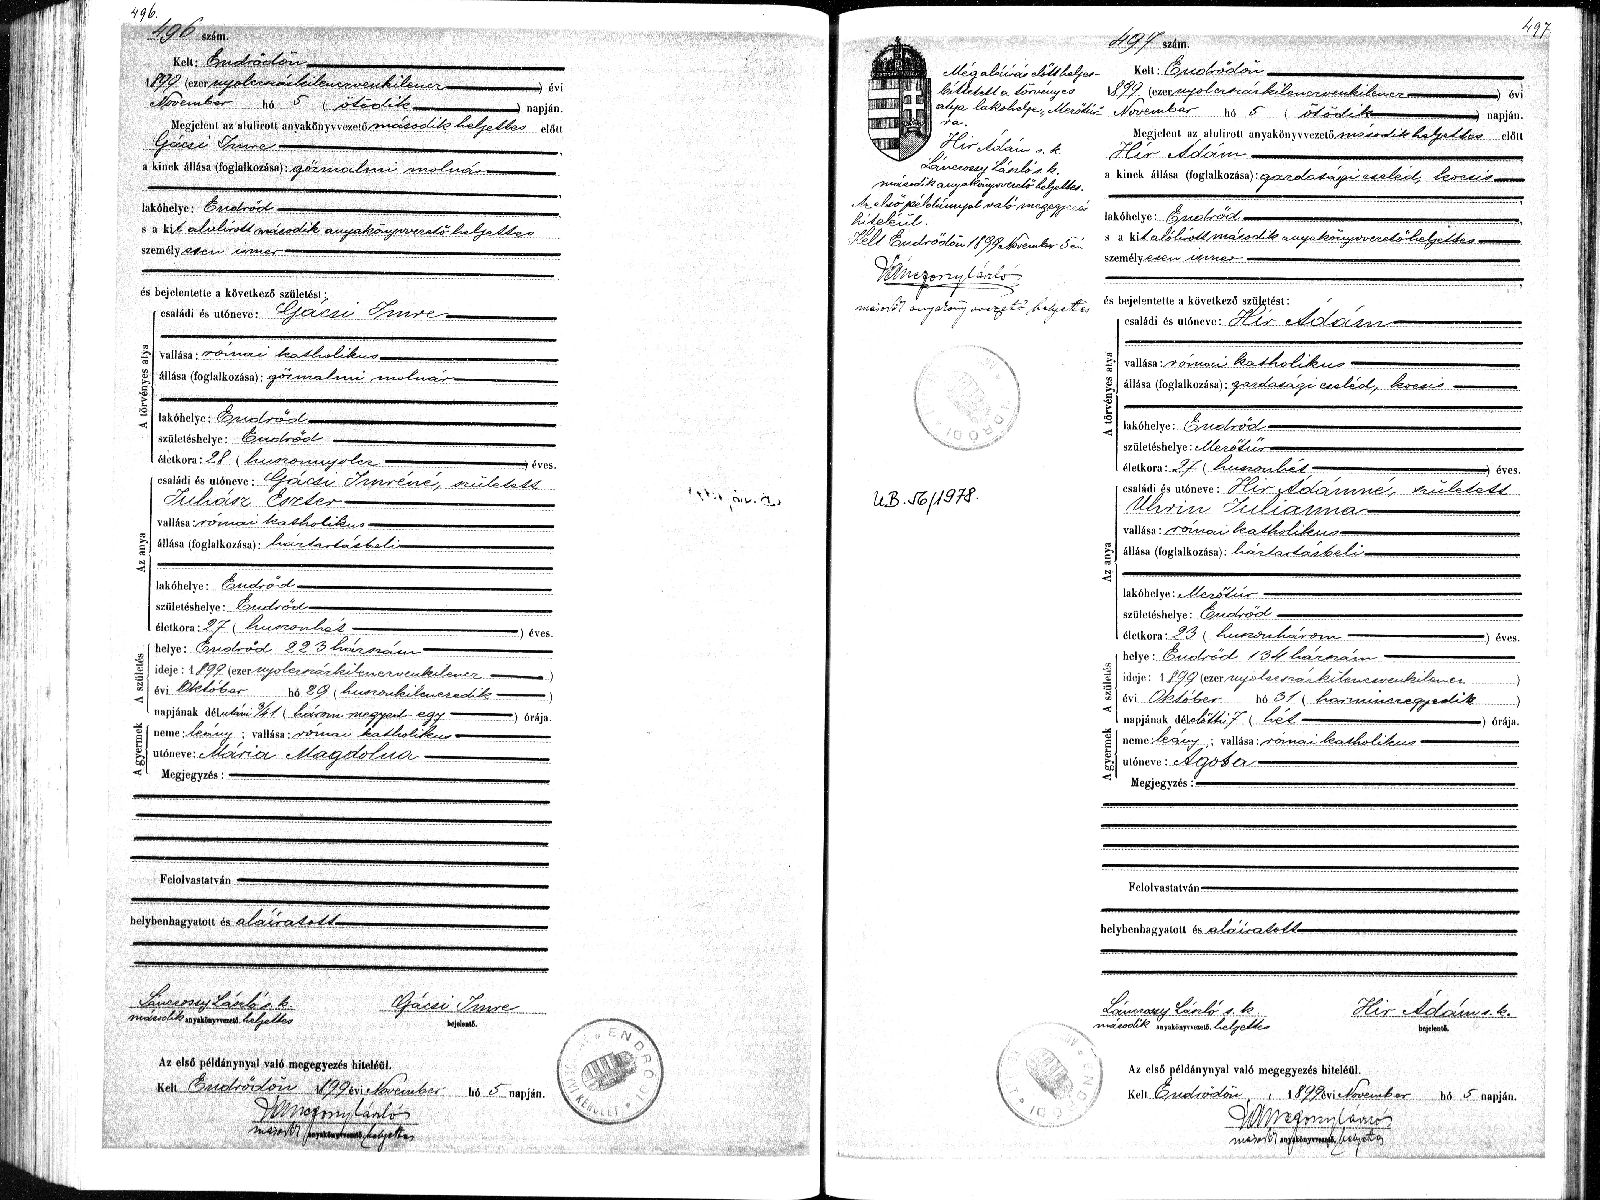 496.
496 szám.
Kelt: Endrődön
1899 (ezer nyolczszázkilenczvenkilencz) évi
November hó 5 (ötödik) napján.
Megjelent az alulirott anyakönyvvezető, második helyettes előtt
Gácsi Imre
a kinek állása (foglalkozása): gőzmalmi molnár
lakóhelye: Endrőd
s a kit alulirott második anyakönyvvezető helyettes
személyesen ismer
és bejelentette a következő születést:
A törvényes atya
családi és utóneve: Gácsi Imre
vallása: római katholikus
állása (foglalkozása): gőzmalmi molnár
lakóhelye: Endrőd
születéshelye: Endrőd
életkora: 28 (huszonnyolcz) éves.
Az anya
családi és utóneve: Gácsi Imréné, született
Juhász Eszter
vallása: római katholikus
állása (foglalkozása): háztartásbeli
lakóhelye: Endrőd
születéshelye: Endrőd
életkora: 27 (huszonhét) éves.
A születés
helye: Endrőd 223 házszám
ideje: 1899 (ezer nyolczszázkilenczvenkilencz)
évi Október hó 29 (huszonkilenczedik)
napjának délutáni 3/4 1 (három negyed egy) órája.
A gyermek
neme: leány; vallása: római katholikus
utóneve: Mária Magdolna
Megjegyzés:
Felolvastatván
helybenhagyatott és aláíratott
Lánczossy László s. k.
második anyakönyvvezető. helyettes
Gácsi Imre
bejelentő.
Az első példánynyal való megegyezés hiteléül.
Kelt Endrődön 1899 évi November hó 5 napján.
Lánczossy László
második anyakönyvvezető. helyettes
497
Még aláírás előtt helyes-
bíttetett a törvényes
atya lakohelye "Mezőtúr"
ra.
Hir Ádám s. k.
Lánczossy László s. k.
második anyakönyvvezető helyettes.
Az első példánnyal való megegyezés
hiteléül.
Kelt Endrődön 1899 November 5 én
Lánczossy László
második anyakönyvvezető helyettes
U.B. 56/1978.
497 szám.
Kelt: Endrődön
1899 (ezer nyolczszázkilenczvenkilencz) évi
November hó 5 (ötödik) napján.
Megjelent az alulirott anyakönyvvezető, második helyettes előtt
Hir Ádám
a kinek állása (foglalkozása): gazdasági cseléd, kocsis
lakóhelye: Endrőd
s a kit alólírott második anyakönyvvezető helyettes
személyesen ismer
és bejelentette a következő születést:
A törvényes atya
családi és utóneve: Hir Ádám
vallása: római katholikus
állása (foglalkozása): gazdasági cseléd, kocsis
lakóhelye: Endrőd
születéshelye: Mezőtúr
életkora: 27 (huszonhét) éves.
Az anya
családi és utóneve: Hir Ádámné, született
Uhrin Julianna
vallása: római katholikus
állása (foglalkozása): háztartásbeli
lakóhelye: Mezőtúr
születéshelye: Endrőd
életkora: 23 (huszonhárom) éves.
A születés
helye: Endrőd 134 házszám
ideje: 1899 (ezer nyolczszázkilenczvenkilencz)
évi Október hó 31 (harminczegyedik)
napjának délelőtti 7 (hét) órája.
A gyermek
neme: leány; vallása: római katholikus
utóneve: Ágota
Megjegyzés:
Felolvastatván
helybenhagyatott és aláíratott
Lánczossy László s. k.
második anyakönyvvezető. helyettes
Hir Ádám s. k.
bejelentő.
Az első példánynyal való megegyezés hiteléül.
Kelt Endrődön, 1899 évi November hó 5 napján.
Lánczossy László
második anyakönyvvezető. helyettes